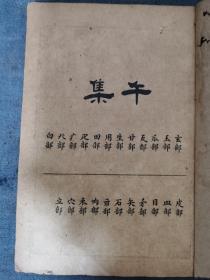 午集
玄部
玉部
瓜部
瓦部
甘部
生部
用部
田部
疋部
疒部
癶部
白部
皮部
皿部
目部
矛部
矢部
石部
示部
禸部
禾部
穴部
立部